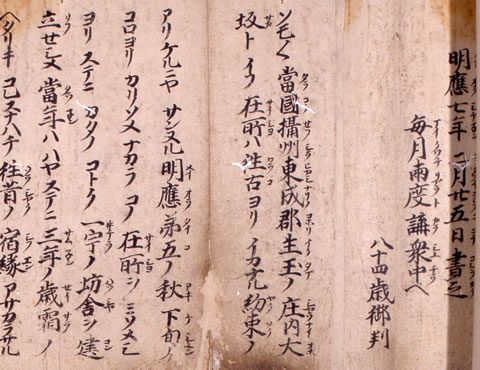 明應七年二月廿五日書之
毎月兩度講衆中ヘ
八十四歳御判
ソモ〳〵當國攝州東成郡生玉ノ庄内大
坂トイフ在所ハ往古ヨリイカナル約束ノ
アリケルニヤサンヌル明應第五ノ秋下旬ノ
コロヨリカリソメナカラコノ在所ヲミソメシ
ヨリステニカタノコトク一宇ノ坊舍ヲ建
立セシメ當年ハハヤステニ三年ノ歳霜ヲ
ヘタリキコレスナハチ往昔ノ宿縁アサカラサル